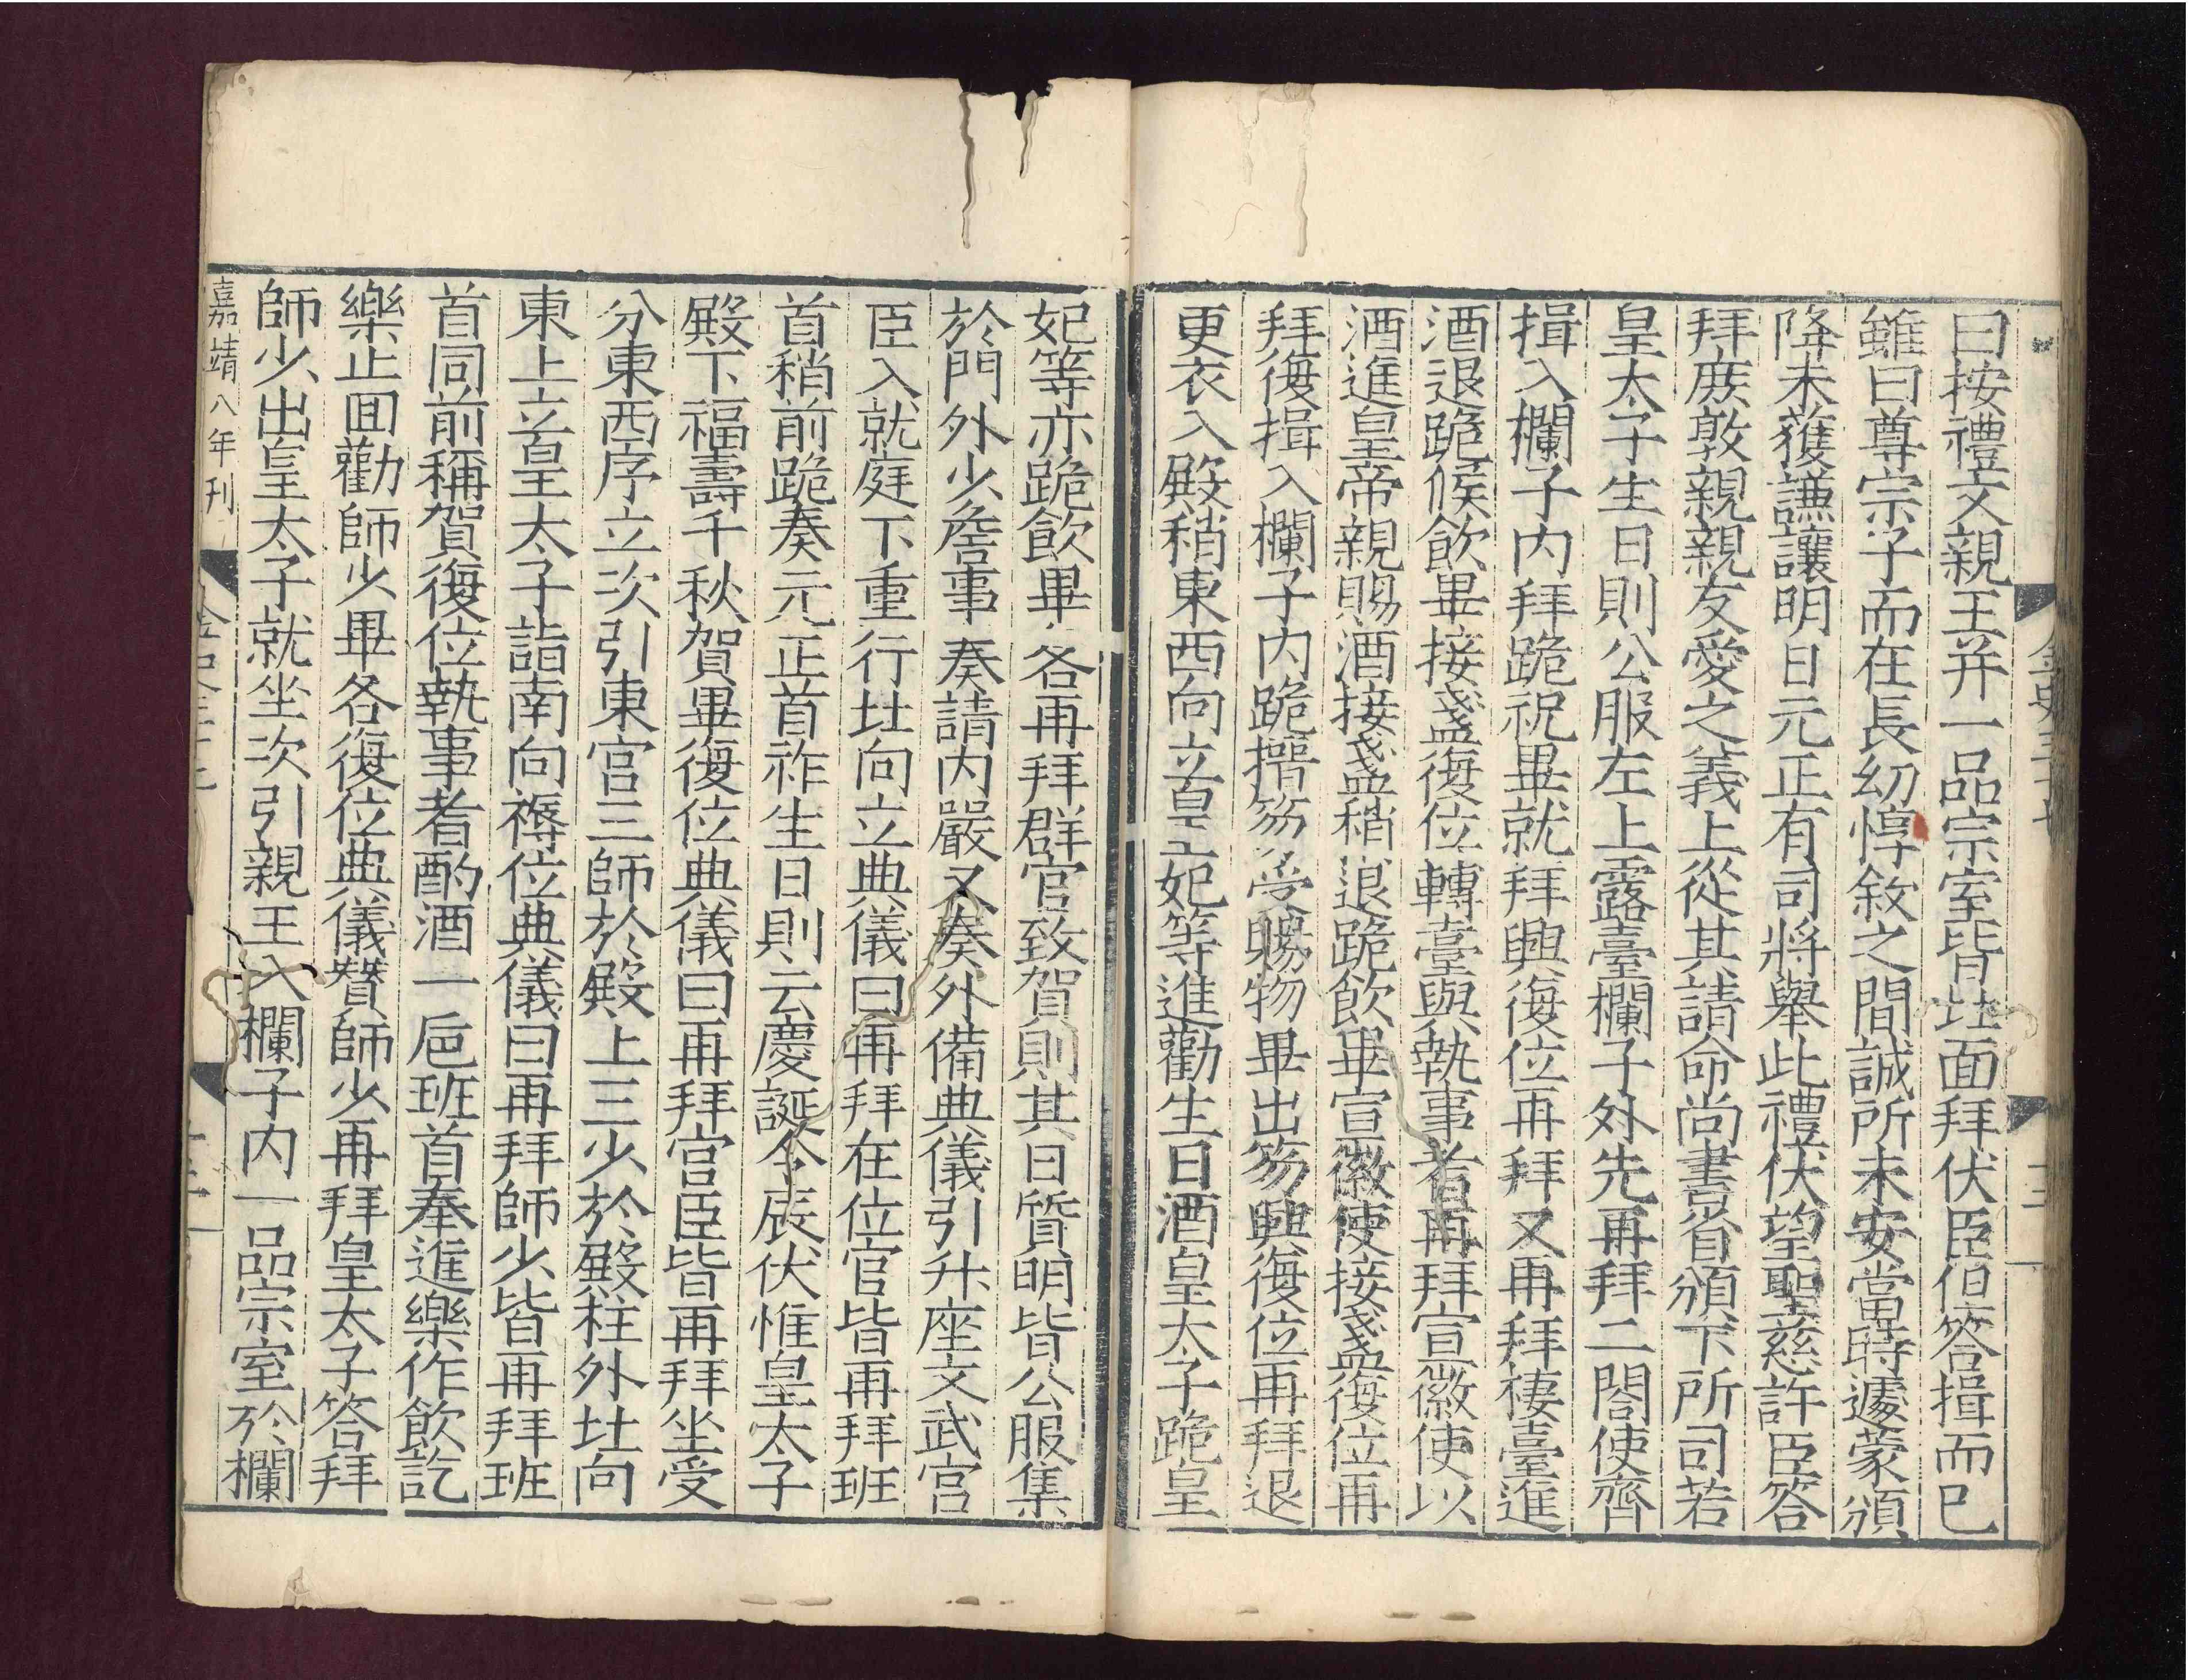 曰按禮文親王并一品宗室皆北面拜伏臣但答揖而已
雖曰尊宗子而在長幼惇敘之間誠所未安當時遽蒙頒
降未獲謙讓明日元正有司將舉此禮伏望聖慈許臣答
拜庶敦親親友愛之義上從其請命尚書省頒下所司若
皇太子生日則公服左上露臺欄子外先再拜二閤使齊
揖入欄子内拜跪祝畢就拜興復位再拜又再拜棲臺進
酒退跪候飲畢接盞復位轉臺與執事者再拜宣徽使以
酒進皇帝親賜酒接盞稍退跪飲畢宣徽使接盞復位再
拜復揖入欄子内跪搢笏受賜物畢出笏興復位再拜退
更衣入殿稍東西向立皇妃等進勸生日酒皇太子跪皇
妃等亦跪飲畢各再拜群官致賀則其日質明皆公服集
於門外少詹事奏請内嚴又奏外備典儀引升座文武宫
臣入就庭下重行北向立典儀曰再拜在位官皆再拜班
首稍前跪奏元正首祚生日則云慶誕令辰伏惟皇太子
殿下福壽千秋賀畢復位典儀曰再拜宫臣皆再拜坐受
分東西序立次引東宫三師於殿上三少於殿柱外北向
東上立皇太子詣南向褥位典儀曰再拜師少皆再拜班
首同前稱賀復位執事者酌酒一巵班首奉進樂作飲訖
樂止囬勸師少畢各復位典儀贊師少再拜皇太子答拜
師少出皇太子就坐次引親王入欄子内一品宗室於欄
嘉靖八年刊